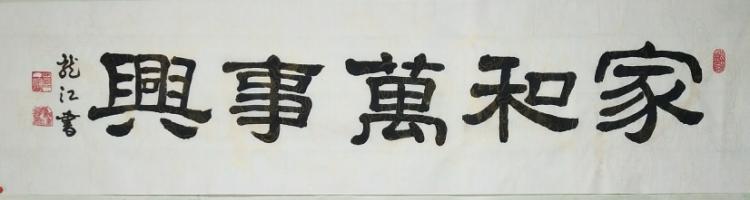 家和萬事興
龍江書